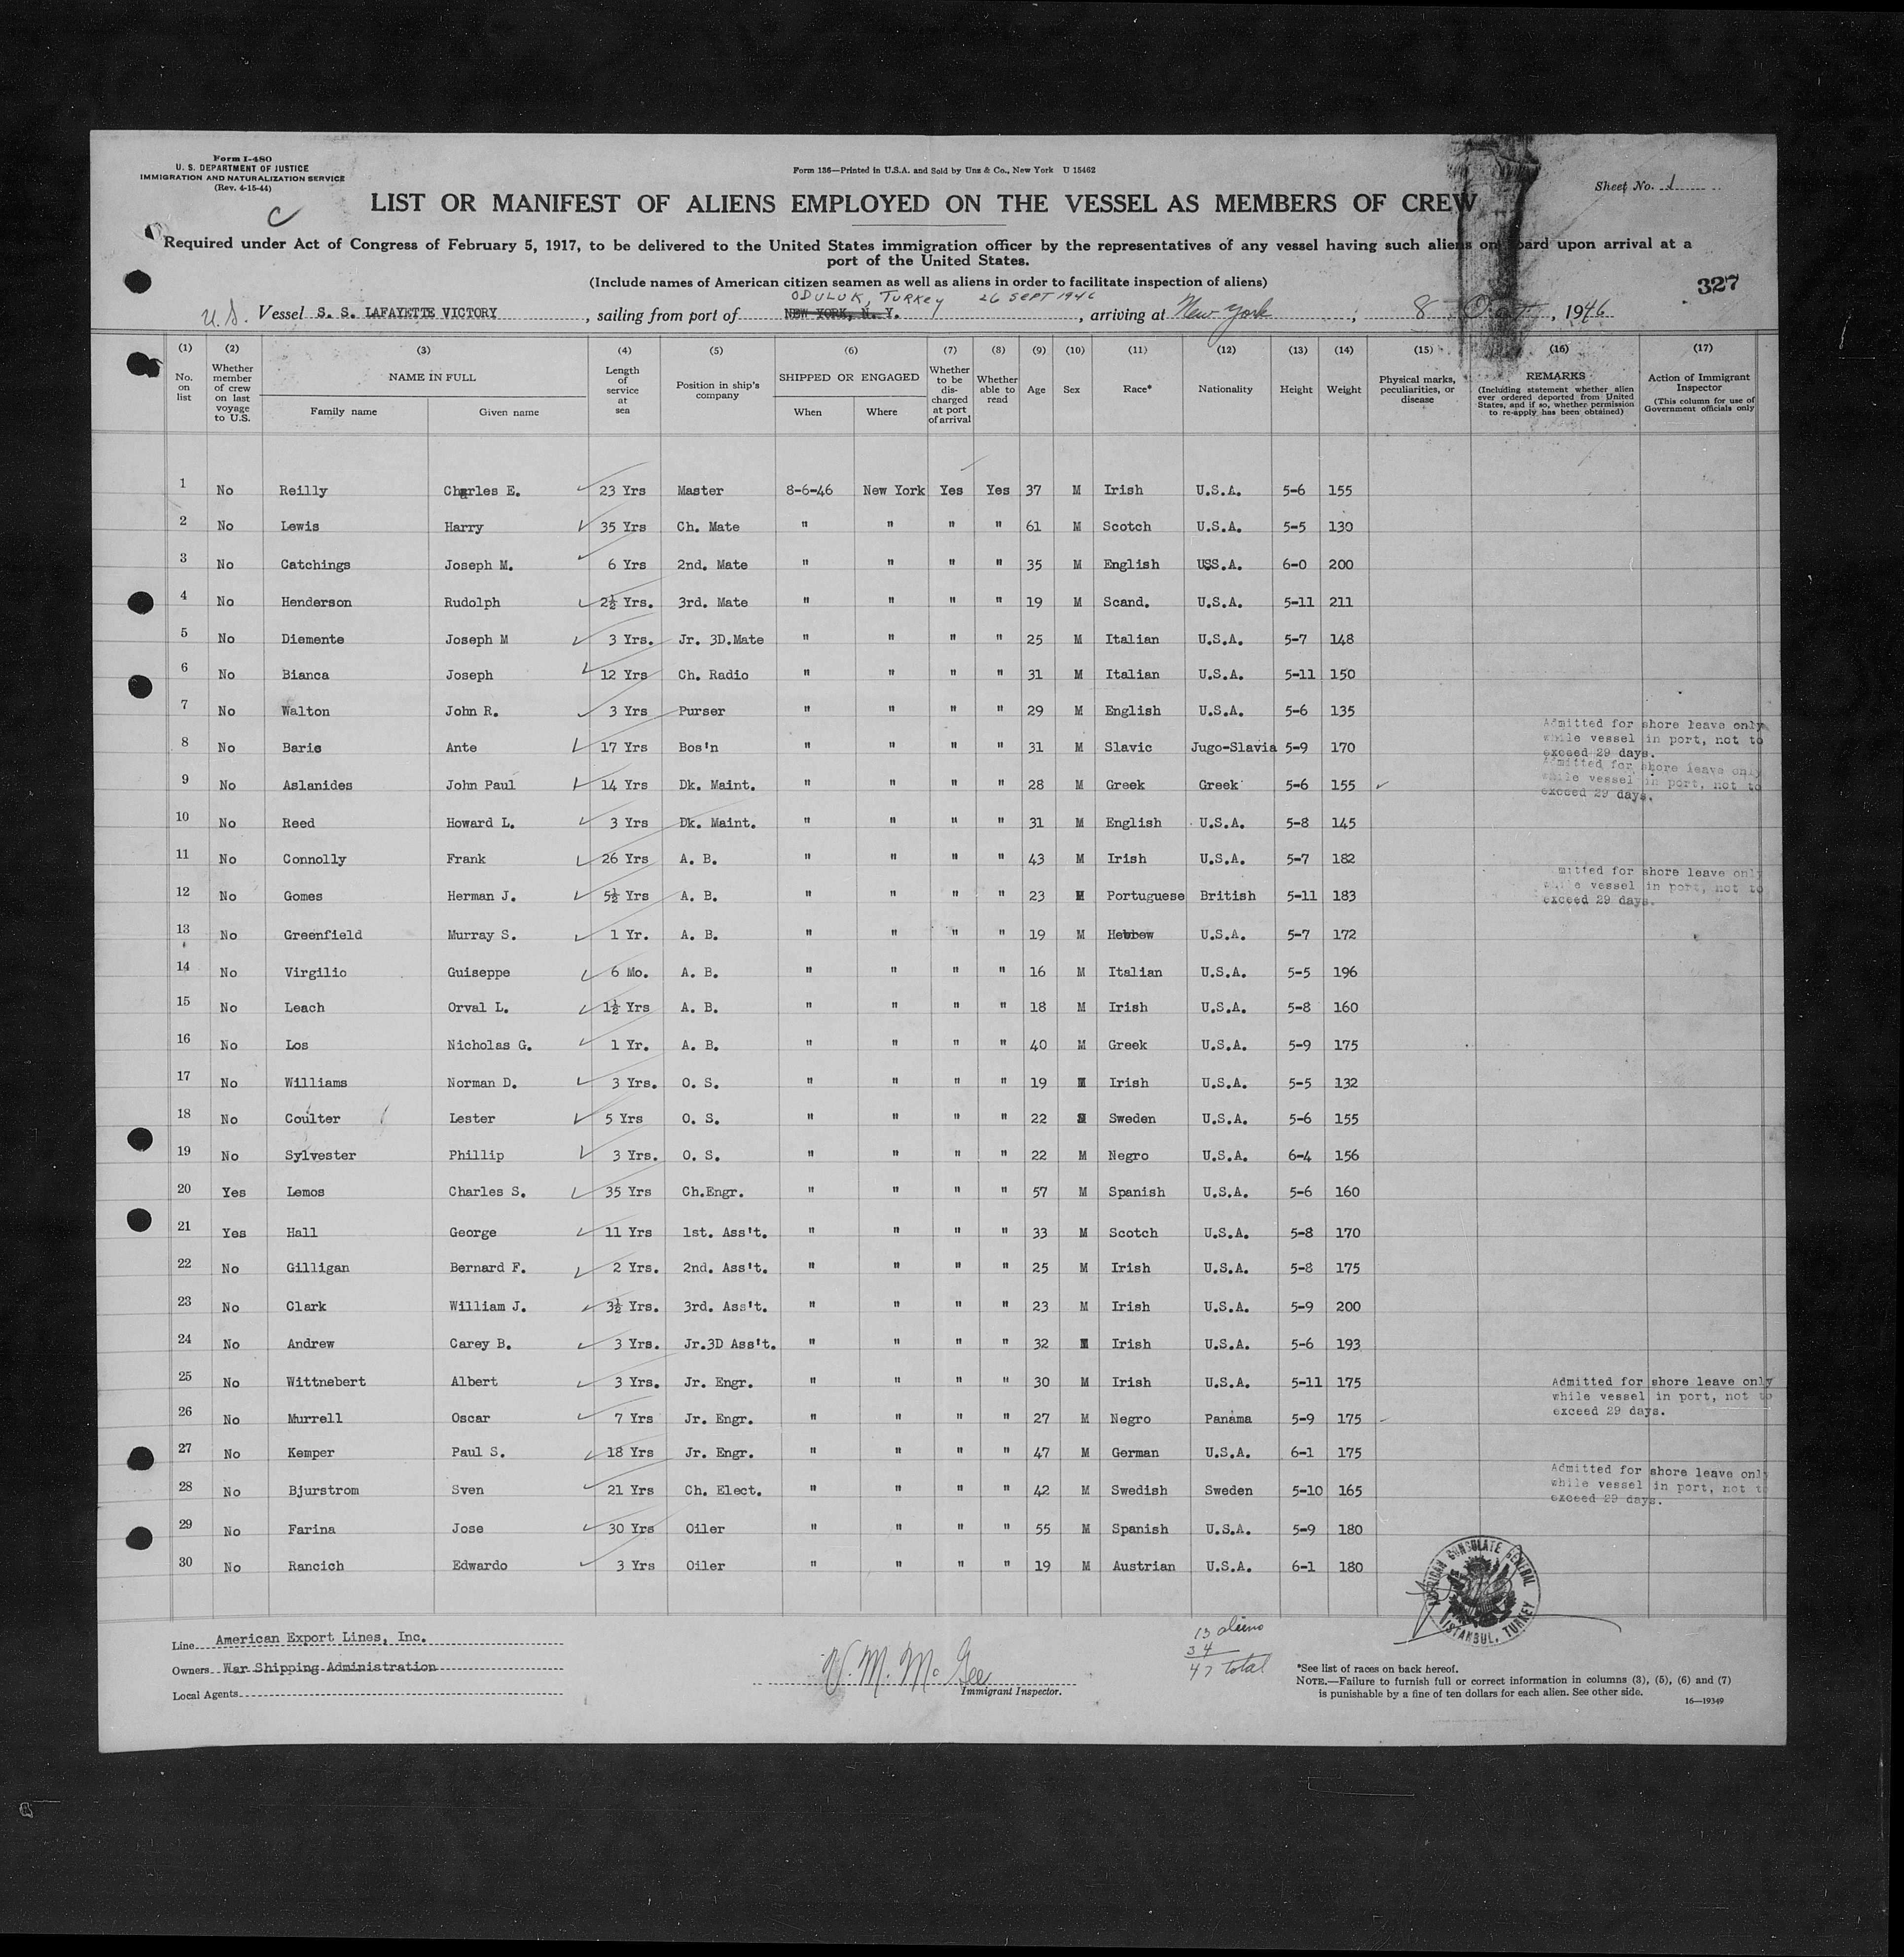 Form I-480
U. S. DEPARTMENT OF JUSTICE
IMMIGRATION AND NATURALIZATION SERVICE
(Rev. 4-15-44)
C
Form 136—Printed in U.S.A. and Sold by Unz & Co., New York U 15462
Sheet No. 1
LIST OR MANIFEST OF ALIENS EMPLOYED ON THE VESSEL AS MEMBERS OF CREW
Required under Act of Congress of February 5, 1917, to be delivered to the United States immigration officer by the representatives of any vessel having such aliens on board upon arrival at a
port of the United States.
(Include names of American citizen seamen as well as aliens in order to facilitate inspection of aliens)
327
ODULUK, TURKEY 26 SEPT 1946
U.S. Vessel S. S. LAFAYETTE VICTORY, sailing from port of NEW YORK, N. Y., arriving at New York, 8 Oct, 1946
(1) No. on list
(2) Whether member of crew on last voyage to U.S.
(3) NAME IN FULL Family name Given name
(4) Length of service at sea
(5) Position in ship's company
(6) SHIPPED OR ENGAGED When Where
(7) Whether to be discharged at port of arrival
(8) Whether able to read
(9) Age
(10) Sex
(11) Race*
(12) Nationality
(13) Height
(14) Weight
(15) Physical marks, peculiarities, or disease
(16) REMARKS (Including statement whether alien ever ordered deported from United States, and if so, whether permission to re-apply has been obtained)
(17) Action of Immigrant Inspector (This column for use of Government officials only
1 No Reilly Charles E. 23 Yrs Master 8-6-46 New York Yes Yes 37 M Irish U.S.A. 5-6 155
2 No Lewis Harry 35 Yrs Ch. Mate " " " " 61 M Scotch U.S.A. 5-5 130
3 No Catchings Joseph M. 6 Yrs 2nd. Mate " " " " 35 M English USS.A. 6-0 200
4 No Henderson Rudolph 2½ Yrs. 3rd. Mate " " " " 19 M Scand. U.S.A. 5-11 211
5 No Diemente Joseph M 3 Yrs. Jr. 3D.Mate " " " " 25 M Italian U.S.A. 5-7 148
6 No Bianca Joseph 12 Yrs Ch. Radio " " " " 31 M Italian U.S.A. 5-11 150
7 No Walton John R. 3 Yrs Purser " " " " 29 M English U.S.A. 5-6 135
8 No Baric Ante 17 Yrs Bos'n " " " " 31 M Slavic Jugo-Slavia 5-9 170 Admitted for shore leave only while vessel in port, not to exceed 29 days.
9 No Aslanides John Paul 14 Yrs Dk. Maint. " " " " 28 M Greek Greek 5-6 155 Admitted for shore leave only while vessel in port, not to exceed 29 days.
10 No Reed Howard L. 3 Yrs Dk. Maint. " " " " 31 M English U.S.A. 5-8 145
11 No Connolly Frank 26 Yrs A. B. " " " " 43 M Irish U.S.A. 5-7 182
12 No Gomes Herman J. 5½ Yrs A. B. " " " " 23 M Portuguese British 5-11 183 mitted for shore leave only while vessel in port, not to exceed 29 days.
13 No Greenfield Murray S. 1 Yr. A. B. " " " " 19 M Hebrew U.S.A. 5-7 172
14 No Virgilio Guiseppe 6 Mo. A. B. " " " " 16 M Italian U.S.A. 5-5 196
15 No Leach Orval L. 1½ Yrs A. B. " " " " 18 M Irish U.S.A. 5-8 160
16 No Los Nicholas G. 1 Yr. A. B. " " " " 40 M Greek U.S.A. 5-9 175
17 No Williams Norman D. 3 Yrs. O. S. " " " " 19 M Irish U.S.A. 5-5 132
18 No Coulter Lester 5 Yrs O. S. " " " " 22 M Sweden U.S.A. 5-6 155
19 No Sylvester Phillip 3 Yrs. O. S. " " " " 22 M Negro U.S.A. 6-4 156
20 Yes Lemos Charles S. 35 Yrs Ch.Engr. " " " " 57 M Spanish U.S.A. 5-6 160
21 Yes Hall George 11 Yrs 1st. Ass't. " " " " 33 M Scotch U.S.A. 5-8 170
22 No Gilligan Bernard F. 2 Yrs. 2nd. Ass't. " " " " 25 M Irish U.S.A. 5-8 175
23 No Clark William J. 3½ Yrs. 3rd. Ass't. " " " " 23 M Irish U.S.A. 5-9 200
24 No Andrew Carey B. 3 Yrs. Jr.3D Ass't. " " " " 32 M Irish U.S.A. 5-6 193
25 No Wittnebert Albert 3 Yrs. Jr. Engr. " " " " 30 M Irish U.S.A. 5-11 175
26 No Murrell Oscar 7 Yrs Jr. Engr. " " " " 27 M Negro Panama 5-9 175 Admitted for shore leave only while vessel in port, not to exceed 29 days.
27 No Kemper Paul S. 18 Yrs Jr. Engr. " " " " 47 M German U.S.A. 6-1 175
28 No Bjurstrom Sven 21 Yrs Ch. Elect. " " " " 42 M Swedish Sweden 5-10 165 Admitted for shore leave only while vessel in port, not to exceed 29 days.
29 No Farina Jose 30 Yrs Oiler " " " " 55 M Spanish U.S.A. 5-9 180
30 No Rancich Edwardo 3 Yrs Oiler " " " " 19 M Austrian U.S.A. 6-1 180
AMERICAN CONSULATE GENERAL ISTANBUL, TURKEY
Line American Export Lines, Inc.
Owners War Shipping Administration
Local Agents
V. M. McGee
Immigrant Inspector.
13 aliens
34
47 total
*See list of races on back hereof.
NOTE.—Failure to furnish full or correct information in columns (3), (5), (6) and (7)
is punishable by a fine of ten dollars for each alien. See other side.
16—19349